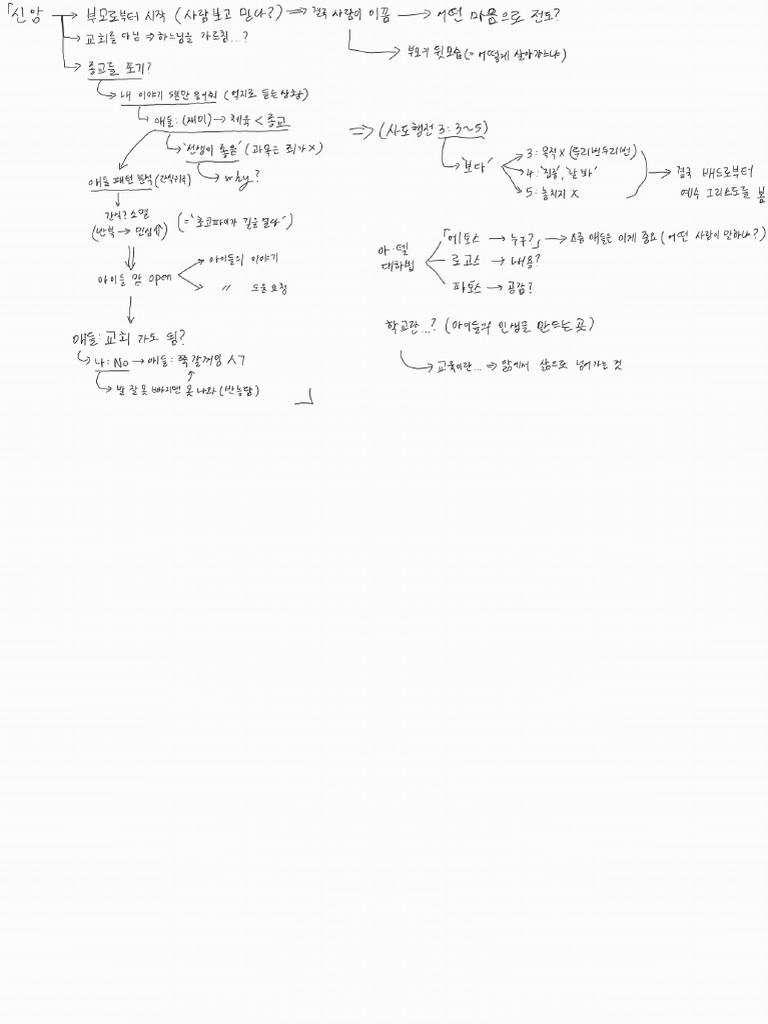 「신앙 → 부모로부터 시작 (사람보고 믿나?) ⇒ 결국 사람이 이끎 → 어떤 마음으로 전도?
→ 교회를 다님 ⇒ 하느님을 가르침...?
→ 부모의 뒷모습 (= 어떻게 살아가느냐)
→ 종교를 포기?
→ 내 이야기 5분만 들어줘 (억지로 듣는 상황)
→ 애들: (재미) → 체육 < 종교
→ '선생이 좋음' (과목은 죄가 X)
→ why?
애들 패턴 분석 (간식귀족)
간식? 소명
(반복 → 민심⇑) (= '초코파이가 길을 열다')
아이들 맘 open → 아이들의 이야기
→ 〃 도움 요청
애들: 교회 가도 됨?
→ 나: No → 애들: 쭉 갈꺼임 ㅅㄱ
→ 발 잘못 빠지면 못 나와 (반농담) 」
⇒ (사도행전 3: 3~5)
→ '보다' → 3: 목적 X (두리번두리번)
→ 4: '집중', '날 봐'
→ 5: 놓치지 X
→ 결국 베드로부터
예수 그리스도를 봄
아·텔
대화법
「에토스 → 누구?」 → 요즘 애들은 이게 중요 (어떤 사람이 말하나?)
로고스 → 내용?
파토스 → 공감?
학교란...? (아이들의 인생을 만드는 곳)
→ 교육이란... ⇒ 앎에서 삶으로 넘어가는 것